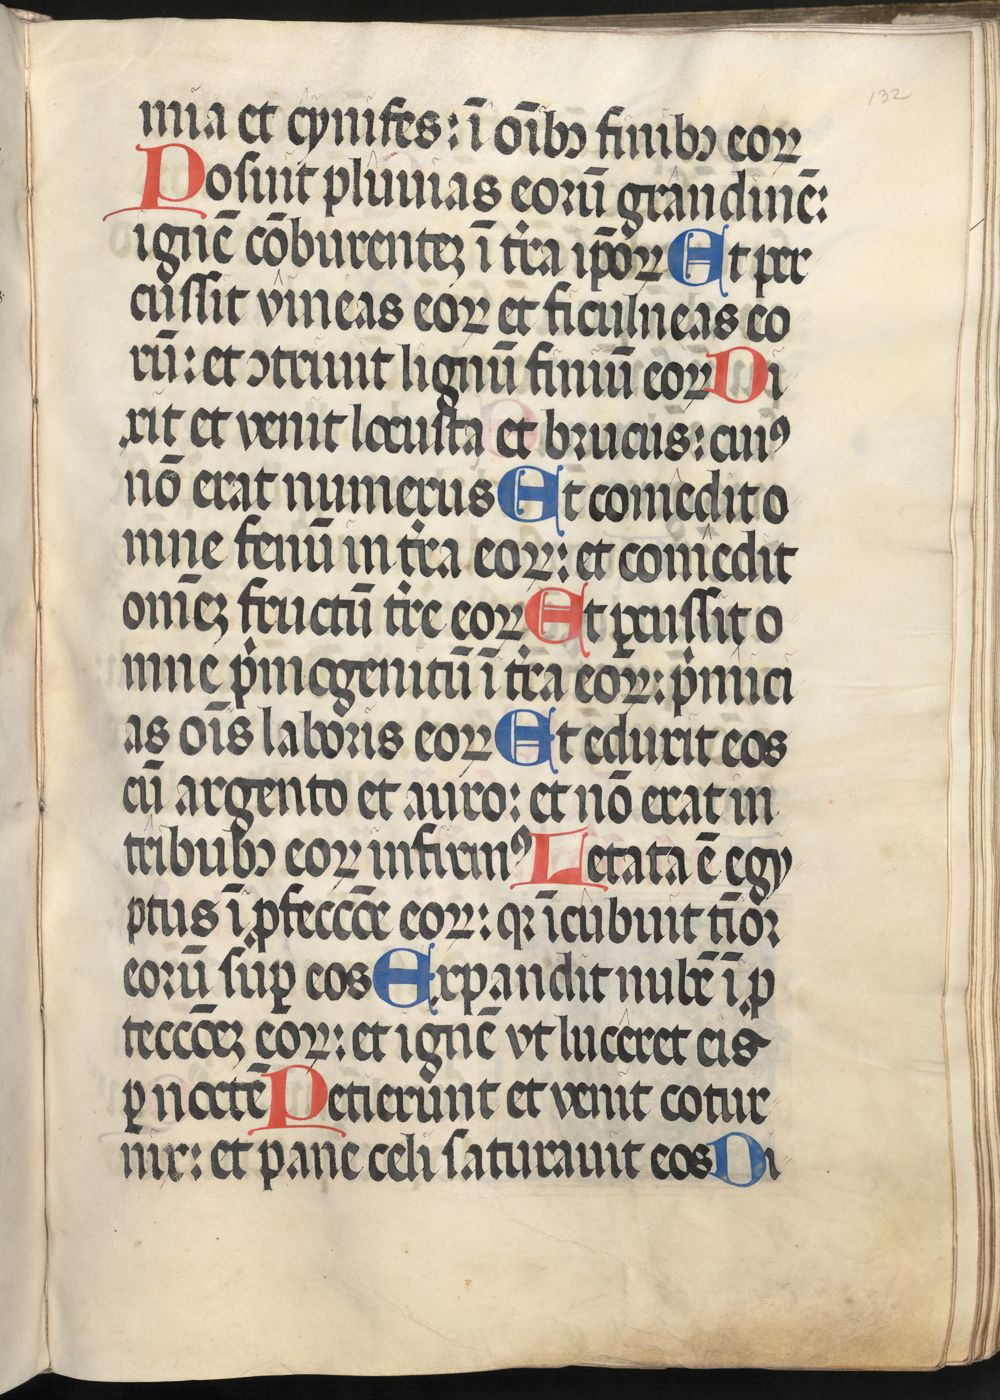 132
mia et cynifes: ī oīb⁊ finib⁊ eoꝝ
Posuit pluuias eorū grandinē:
ignē cōburentēʒ ī tr̄a ip̄oꝝ Et per
cussit vineas eoꝝ et ficulneas eo
rū: et ꝯtriuit lignū finiū eoꝝ Di
xit et venit locusta et brucus: cuiꝰ
nō erat numerus Et comedit o
mne fenū in tr̄a eoꝝ: et comedit
om̄eʒ fructū tr̄e eoꝝ Et ꝑcussit o
mne pͥmogenitū ī tr̄a eoꝝ: pͥmici
as oīs laboris eoꝝ Et eduxit eos
cū argento et auro: et nō erat in
tribubꝫ eoꝝ infirmꝰ Letata ē egy
ptus ī ꝓfeccōe eoꝝ: qꝛ īcubuit tīor
eorū suꝑ eos Expandit nubē ī ꝓ
teccōeʒ eoꝝ: et ignē vt luceret eis
ꝑ noctē Petierunt et venit cotur
nix: et pane celi saturauit eos Di